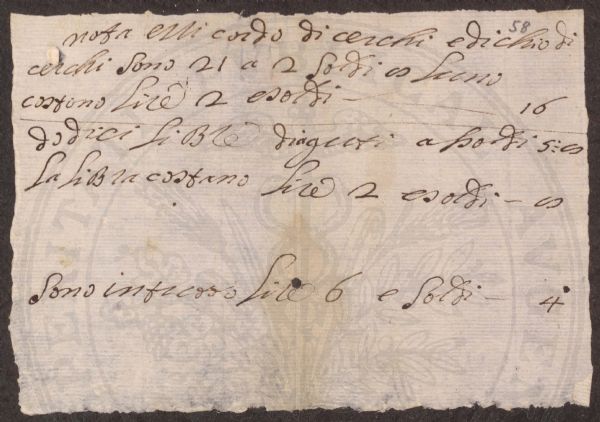 58
nota e Ricordo di cerchi e di chiodi
cerchi sono 21 a 2 soldi es luno
costono Lire 2 e soldi — 16
dodici LiBre di aguti a soldi 5: es
La LiBra costano Lire 2 e soldi — es
sono in tutto Lire 6 e soldi — 4